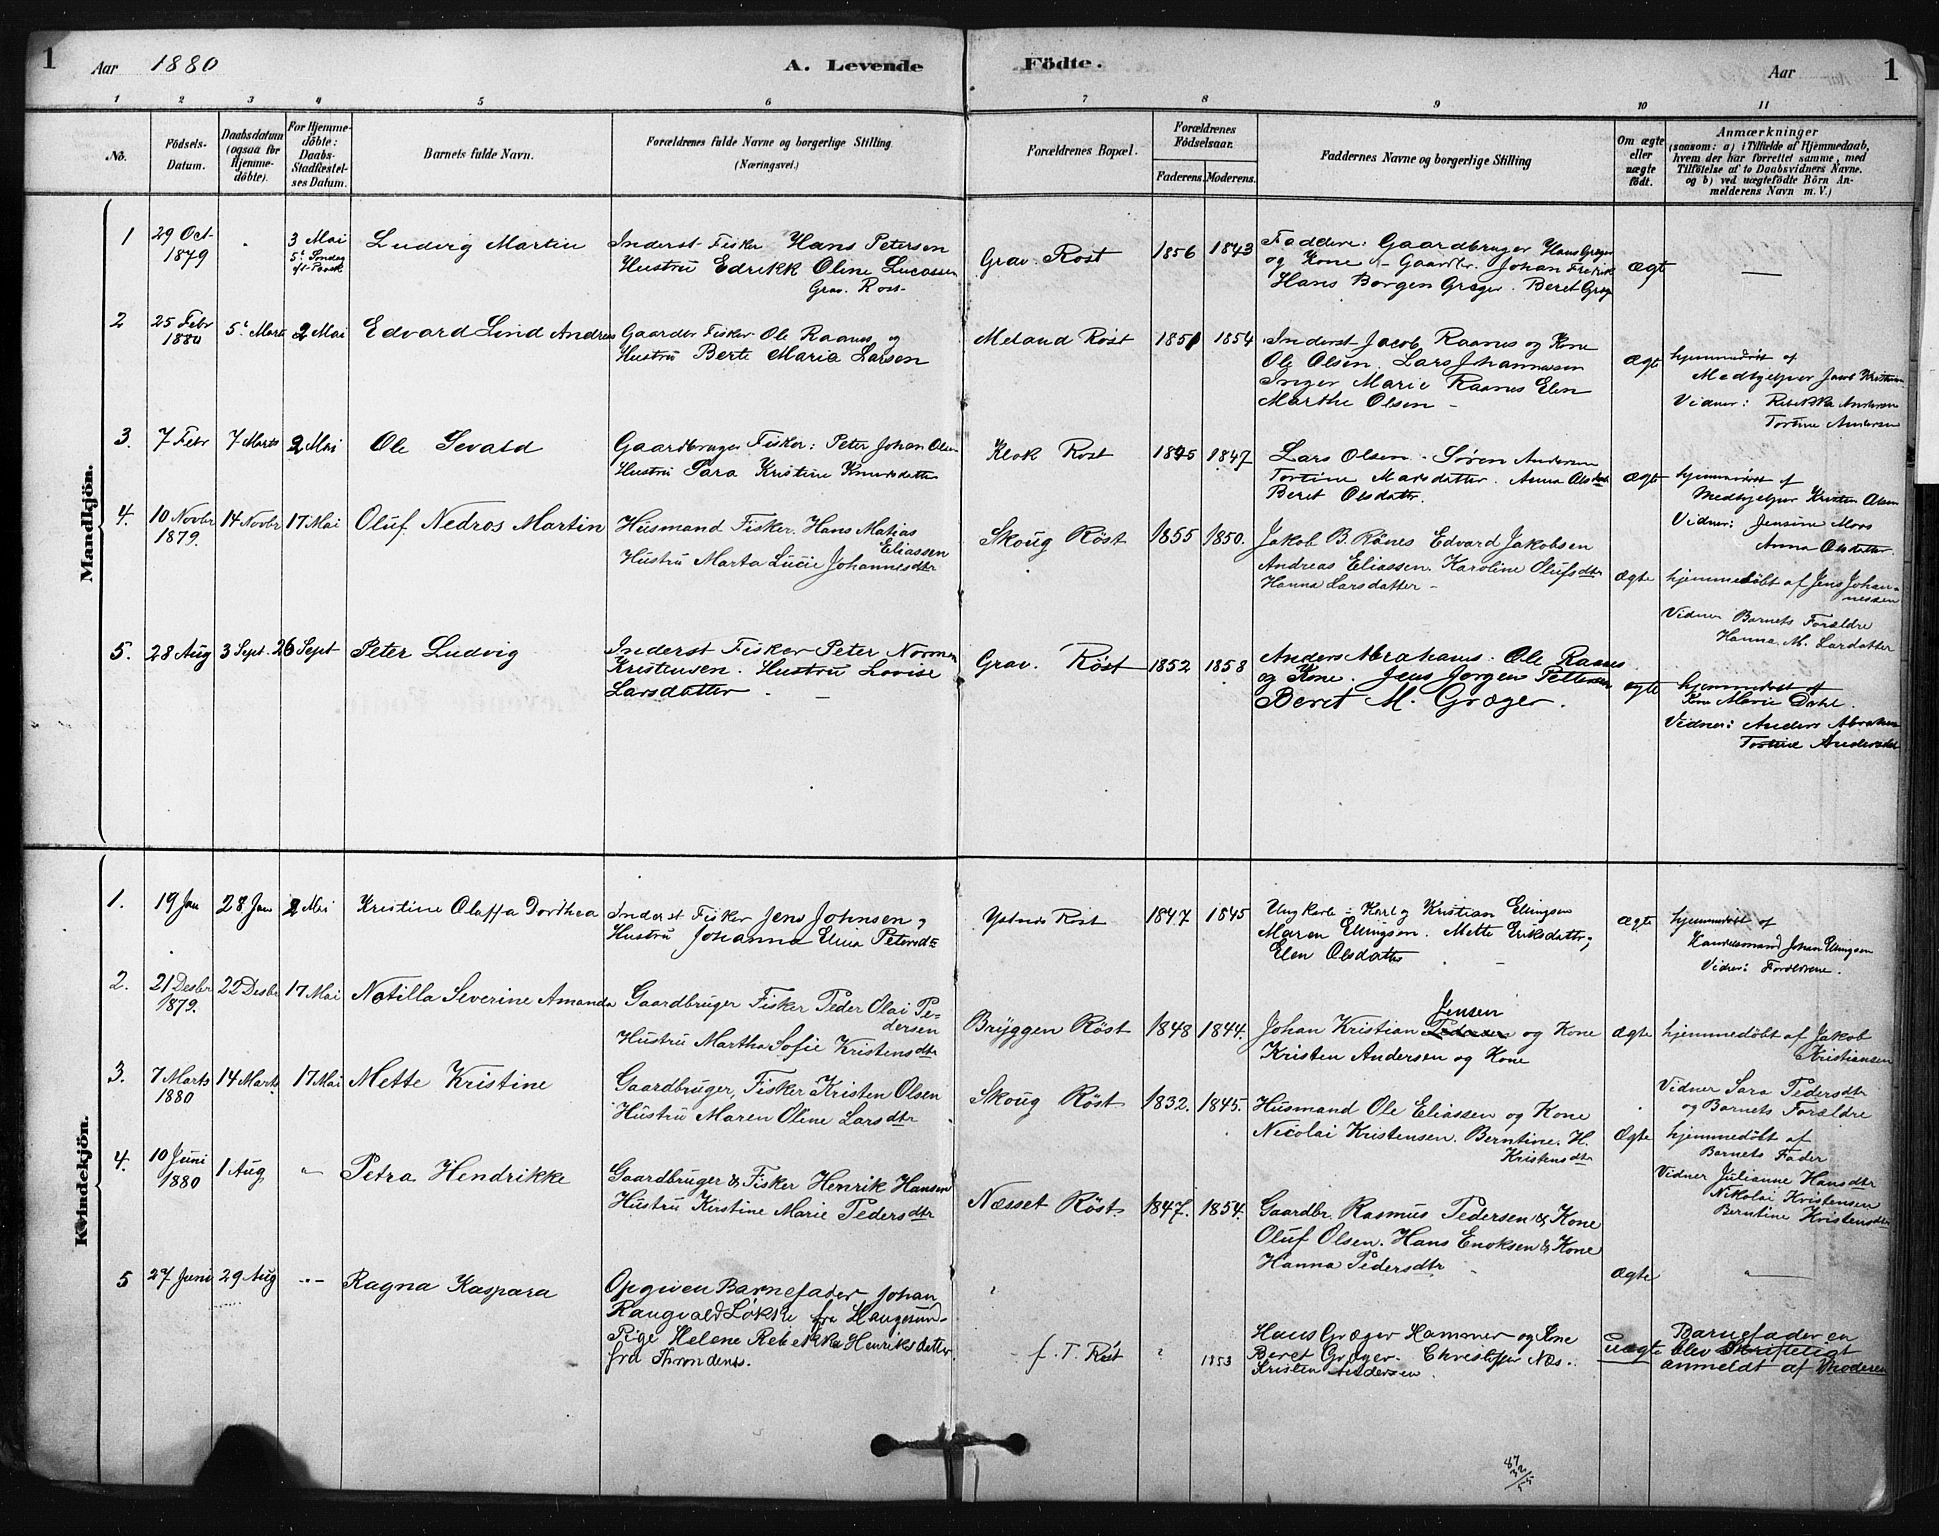 1
Aar 1880
A. Levende Födte.
Aar
1
1 2 3 4 5 6 7 8 9 10 11
No.
Födsels-
Datum.
Daabsdatum
(ogsaa for
Hjemme-
döbte).
For Hjemme-
döbte:
Daabs-
Stadfæstel-
ses Datum.
Barnets fulde Navn.
Forældrenes fulde Navne og borgerlige Stilling.
(Næringsvei.)
Forældrenes Bopæl.
Forældrenes
Födselsaar.
Faderens. Moderens.
Faddernes Navne og borgerlige Stilling
Om ægte
eller
uægte
födt.
Anmærkninger
(saasom: a) i Tilfælde af Hjemmedaab,
hvem der har forrettet samme, med
Tilföielse af to Daabsvidners Navne.
og b) ved uægtefödte Börn An-
melderens Navn m. V.)
Mandkjön.
1
29 Oct
1879
3 Mai
5te Søndag
eft. Paask
Ludvig Martin
Inderst Fisker Hans Petersen
Hustru Edrikk Oline Lucassen
Grav. Røst
Grav. Røst
1856
1843
Faddere: Gaardbruger Hans Græger
og Kone Gaardbr. Johan Fredrik
Hans Borgen Græger. Beret Græg
Ægt
—
2
25 Febr
1880
5te Marts
2 Mai
Edvard Lind Andreas
Gaardbr Fisker Ole Raanes og
Hustru Berte Maria Larsen
Meland Røst
1851
1854
Inderst Jacob Raanes og Kone
Ole Olsen. Lars Johannessen
Inger Marie Raanes Elen
Marthe Olsen –
ægt
hjemmedøbt af
Medhjelper Jacob Kristensen
Vidner: Rebekka Andersen
Tortine Andersen
3.
7 Febr
7 Marts
2 Mai
Ole Sevald
Gaardbruger Fisker: Peter Johan Olsen
Hustru Sara Kristine Knudsdatter
Klok Røst
1845
1847
Lars Olsen. Søren Andersen
Tortine Marsdatter. Anna Olsdat
Beret Olsdatter.
ægte
hjemmedøbt af
Medhjelper Kristen Olsen
Vidner: Jensine Mors
Anna Olsdatter.
4.
10 Novbr
1879.
14 Novbr
17 Mai
Oluf Nedros Martin
Husmand Fisker. Hans Matias
Eliassen
Hustru Marta Lucie Johannesdtr
Skoug Røst
1855
1850.
Jakob B. Rånes Edvard Jakobsen
Andreas Eliassen. Karoline Olufsdtr
Hanna Larsdatter –
ægte
hjemmedøbt af Jens Johan-
nessen
Vidner Barnets Forældre
Hanna M. Larsdatter
5.
28 Aug
3 Sept.
26 Sept
Peter Ludvig
Inderst Fisker Peter Normen
Kristensen. Hustru Lovise
Larsdatter. –
Grav. Røst
1852
1858
Anders Abrahams. Ole Raanes
og Kone. Jens Jørgen Pettersen
Beret M. Græger.
ægte
hjemmedøbt af
Kone Marie Dahl.
Vidner: Anders Abraham
Tortine Andersdat
Kvindekjön.
1.
19 Jan
28 Jan
2 Mai
Kristine Olaffa Dorthea
Inderst Fisker Jens Johnsen og
Hustru Johanna Elina Petersdtr
Ystnes Røst
1847
1845
Ung Karle: Karl og Kristian Ellingsen
Maren Ellingsen. Mette Eriksdatter,
Elen Olsdatter
ægte
hjemmedøbt af
Handelsmand Johan Ellingsen
Vidner: Forældrene.
2.
21 Desbr
1879.
22 Desbr
17 Mai
Notilla Severine Amanda
Gaardbruger Fisker Peder Olai Pe-
dersen
Hustru Martha Sofie Kristensdtr
Bryggen Røst
1848
1844.
Jensen
Johan Kristian Pedersen og Kone
Kristen Andersen og Kone
Ægte
hjemmedøbt af Jakob
Kristiansen
Vidner Sara Pedersdtr
og Barnets Forældre
3.
7 Marts
1880
14 Marts
17 Mai
Mette Kristine
Gaardbruger, Fisker Kristen Olsen
Hustru Maren Oline Larsdtr
Skoug Røst
1832.
1845.
Husmand Ole Eliassen og Kone
Nicolai Kristensen. Berntine. H.
Kristensdtr
Ægte
hjemmedøbt af
Barnets Fader
Vidner Julianne Hansdtr
Nikolai Kristensen
Berntine Kristensdtr
4.
10 Juni
1880
1 Aug
"
Petra Hendrikke
Gaardbruger & Fisker Henrik Hansen
Hustru Kirstine Marie Pedersdtr
Næsset Røst
1847.
1854.
Gaardbr. Rasmus Pedersen & Kone
Oluf Olsen. Hans Enoksen & Kone
Hanna Pedersdtr
Ægte
"
5
27 Juni
29 Aug
"
Ragna Kaspara
Opgiven Barnefader Johan
Rangvald Løkke fra Haugesund
Pige Helene Rebekka Henriksdatter
fra Throndenes.
f. T. Røst
1853
Hans Græger Hammer og Kone
Beret Græger. Christoffer Næs.
Kristen Andersen.
Uægte
Barnefader en
blev Skriftligt
anmeldt af Moderen
87
32
55